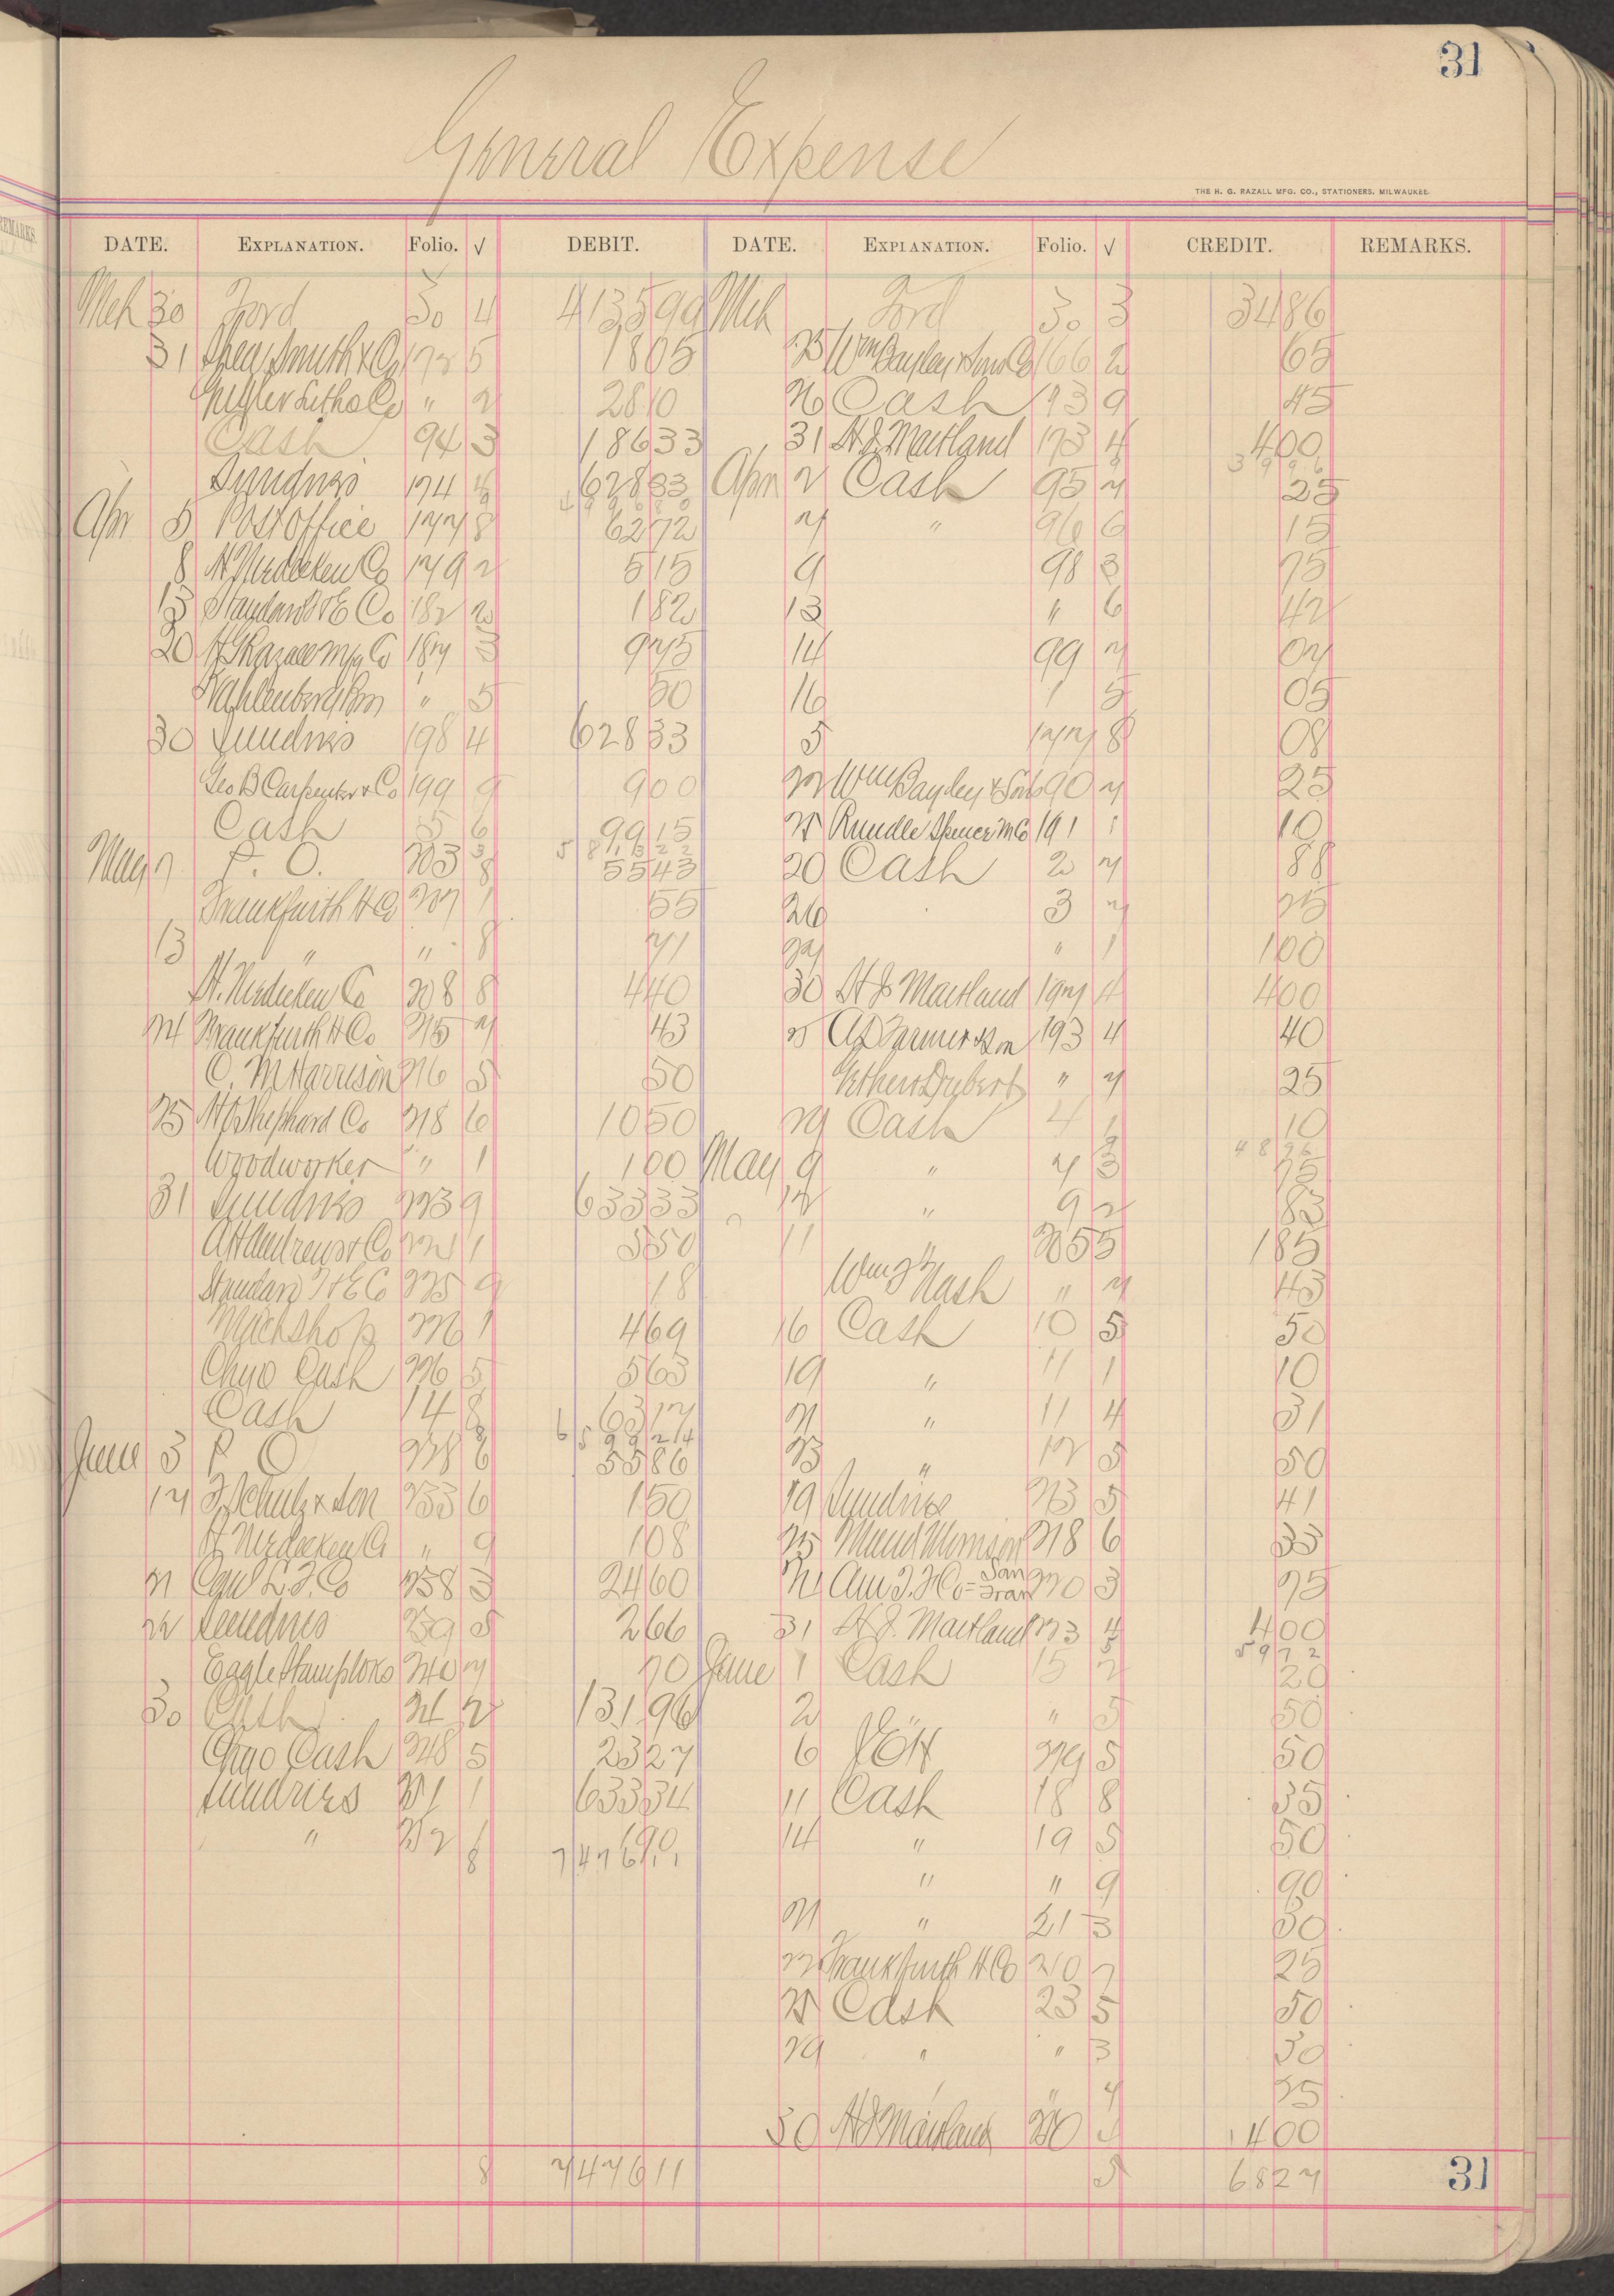 31
General Expense
THE H. G. RAZALL MFG. CO., STATIONERS, MILWAUKEE.
DATE. EXPLANATION. Folio. √ DEBIT. DATE. EXPLANATION. Folio. √ CREDIT. REMARKS.
Mch 30 Ford 30 4 4135 99 Mch Ford 30 3 34 86
31 Smith & Co 5 18 05 25 Wm Bayley & Sons Co 166 2 65
Litho Co " 2 28 10 26 Cash 93 9 45
Cash 94 3 186 33 31 H J Maitland 173 4 4 00
Sundries 174 4 628 33 Apr 2 Cash 95 7 25
Apr 5 Post Office 177 8 62 72 7 " 96 6 15
8 H Niedecken Co 179 2 5 15 9 98 3 75
13 Standard T & E Co 182 2 1 82 13 " 6 42
20 H G Razall Mfg Co 187 3 9 75 14 99 7 07
Kahlenberg Bros " 5 50 16 5 05
30 Sundries 198 4 628 33 5 177 8 08
Geo B Carpenter & Co 199 9 9 00 22 Wm Bayley & Sons 190 7 25
Cash 5 6 99 15 25 Rundle Spence M Co 191 1 10
May 7 P. O. 203 8 55 43 20 Cash 2 7 88
Frankfurth H Co 207 1 55 26 3 7 25
13 " " 8 71 27 " 1 1 00
H. Niedecken Co 208 8 4 40 30 H J Maitland 197 4 4 00
24 Frankfurth H Co 215 7 43 25 193 4 40
C. M Harrison 216 5 50 " 7 25
25 H O Shephard Co 218 6 10 50 29 Cash 4 1 10
Woodworker " 1 1 00 May 9 " 7 3 75
31 Sundries 223 9 633 33 12 " 9 2 83
A H Andrews & Co 221 1 5 50 11 " 205 5 1 85
Standard T & E Co 225 9 18 Wm Nash " 7 43
Mach Shop 226 1 4 69 16 Cash 10 5 50
Chgo Cash 226 5 5 63 19 " 11 1 10
Cash 14 8 63 17 21 " 11 4 31
June 3 P O 228 6 55 86 23 " 12 5 50
17 F. Schulz & Son 233 6 1 50 19 Sundries 213 5 41
H Niedecken Co " 9 1 08 25 218 6 33
21 L. F. Co 238 3 24 60 21 Am T F Co = San Fran 220 3 75
22 Sundries 239 5 2 66 31 H J. Maitland 223 4 4 00
Eagle Stamp Wks 240 7 70 June 1 Cash 15 2 20
30 Cash 24 2 131 96 2 " " 5 50
Chgo Cash 248 5 23 27 6 229 5 50
Sundries 251 1 633 34 11 Cash 18 8 35
" 252 1 6 90 14 " 19 5 50
8 7476 11
" " 9 90
21 " 21 3 30
22 Frankfurth H Co 240 7 25
25 Cash 23 5 50
29 " " 3 30
" 7 25
30 H J Maitland 250 4 00
8 7476 11 5 68 27 31